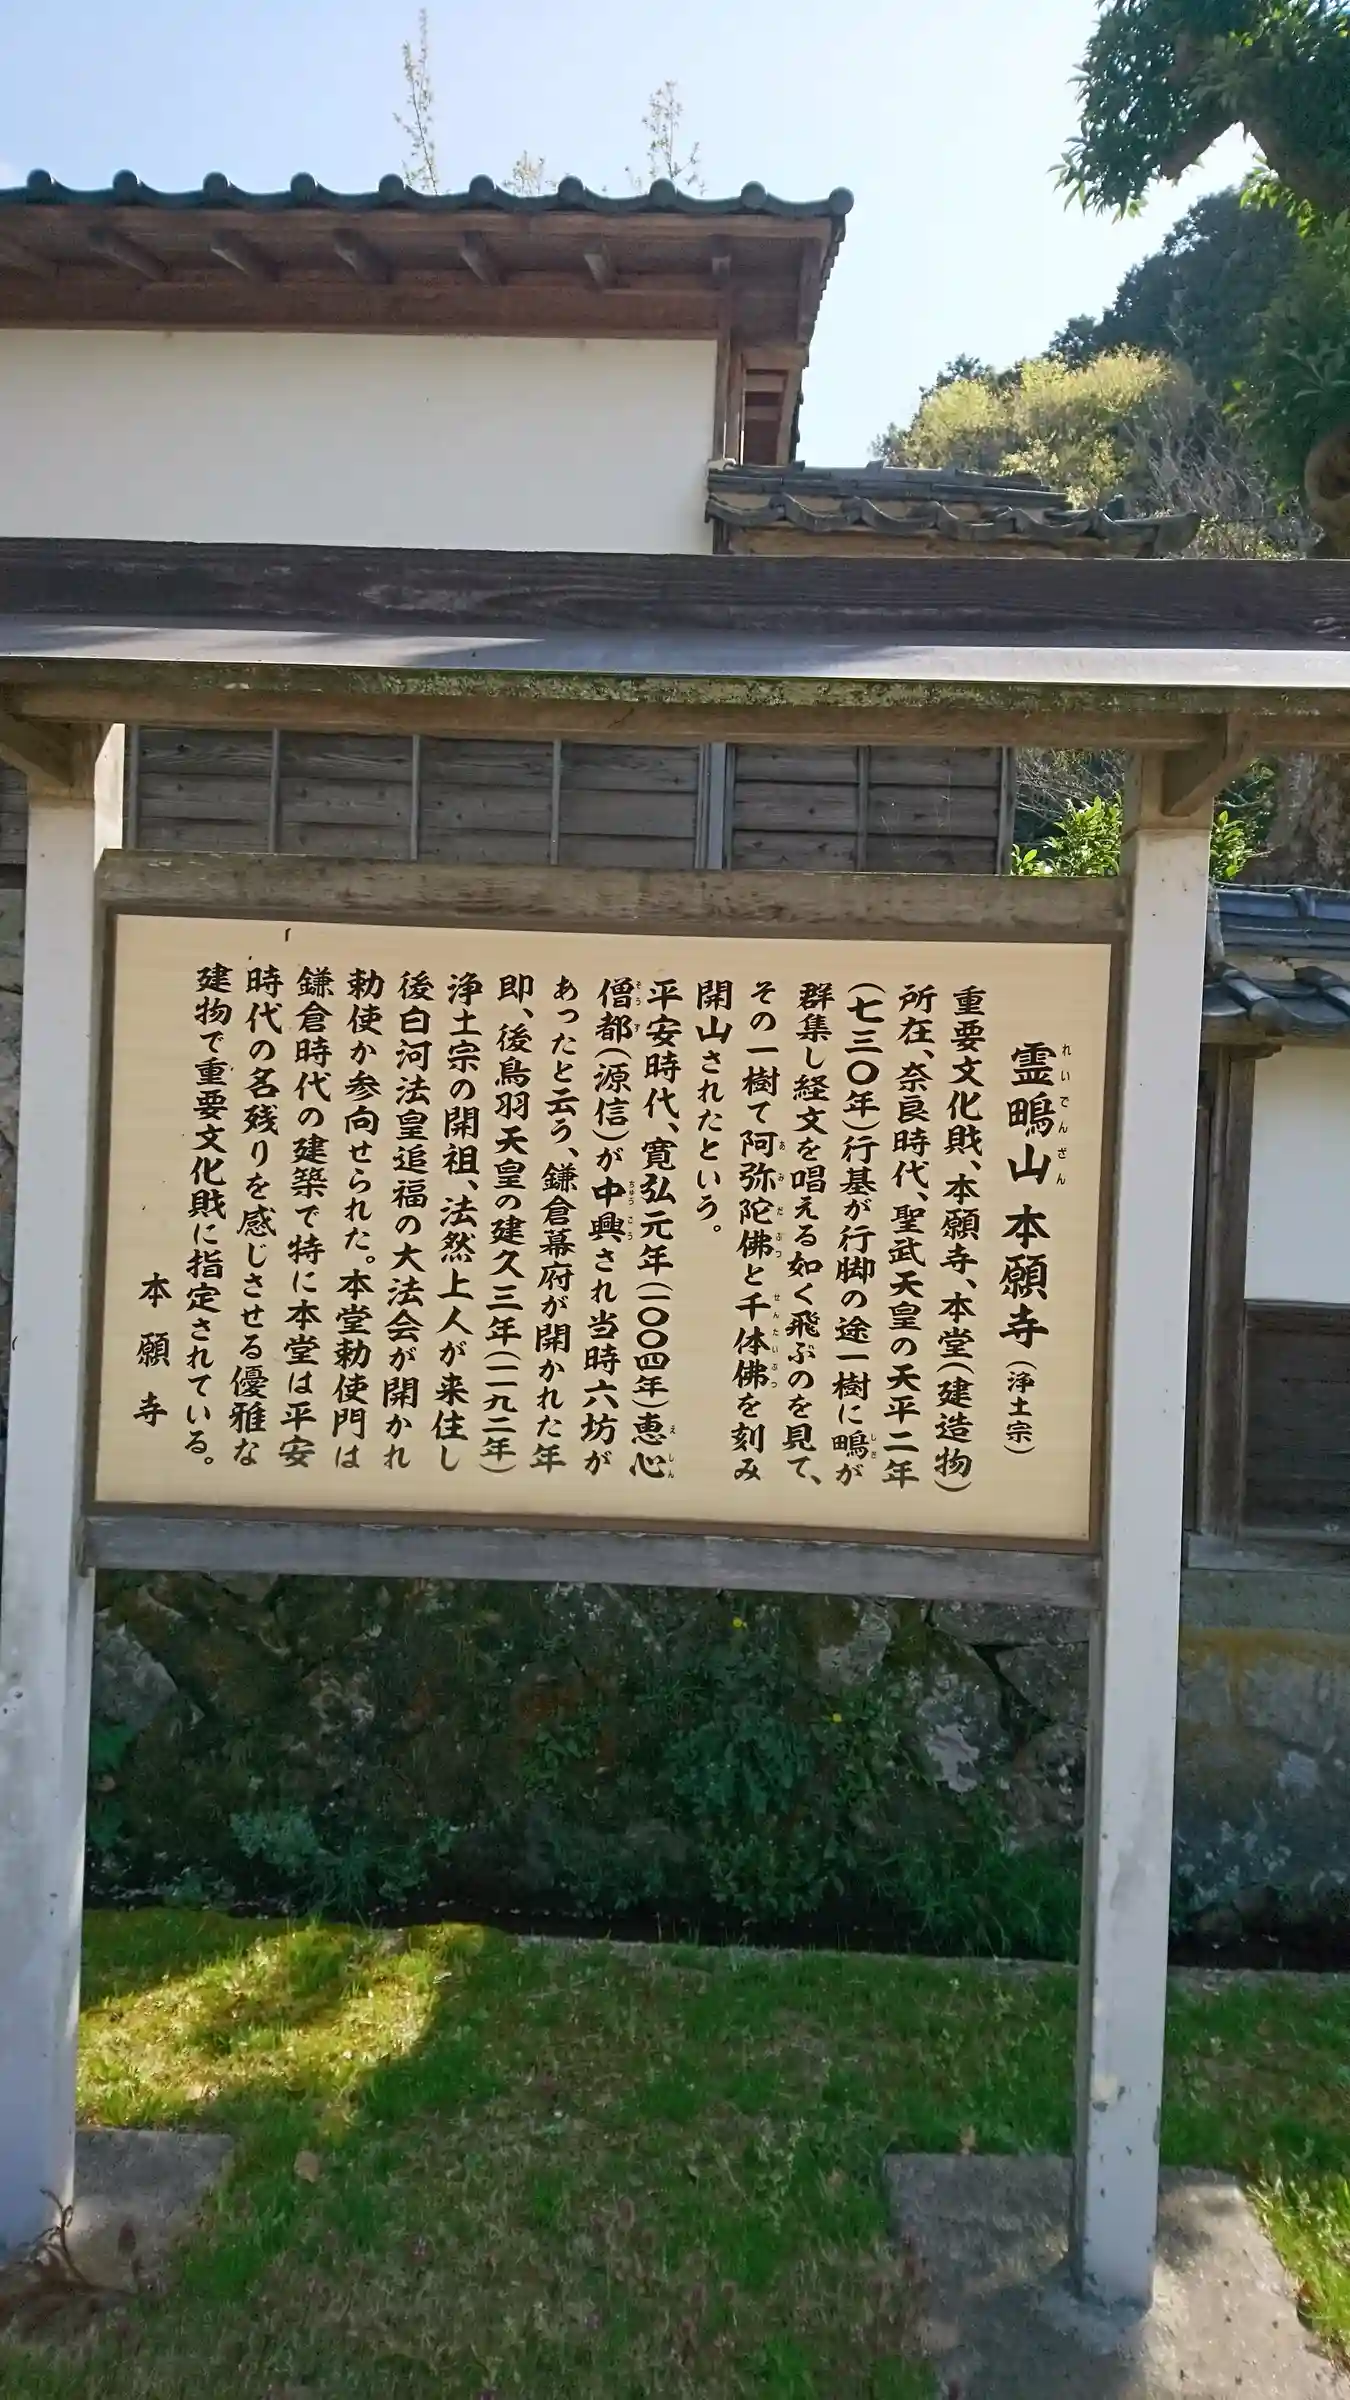 霊鴫山 本願寺（浄土宗）
重要文化財、本願寺、本堂（建造物）
所在、奈良時代、聖武天皇の天平二年
（七三〇年）行基が行脚の途一樹に鴫が
群集し経文を唱える如く飛ぶのを見て、
その一樹て阿弥陀佛と千体佛を刻み
開山されたという。
平安時代、寛弘元年（一〇〇四年）恵心
僧都（源信）が中興され当時六坊が
あったと云う、鎌倉幕府が開かれた年
即、後鳥羽天皇の建久三年（一一九二年）
浄土宗の開祖、法然上人が来住し
後白河法皇追福の大法会が開かれ
勅使か参向せられた。本堂勅使門は
鎌倉時代の建築で特に本堂は平安
時代の名残りを感じさせる優雅な
建物で重要文化財に指定されている。
本願寺